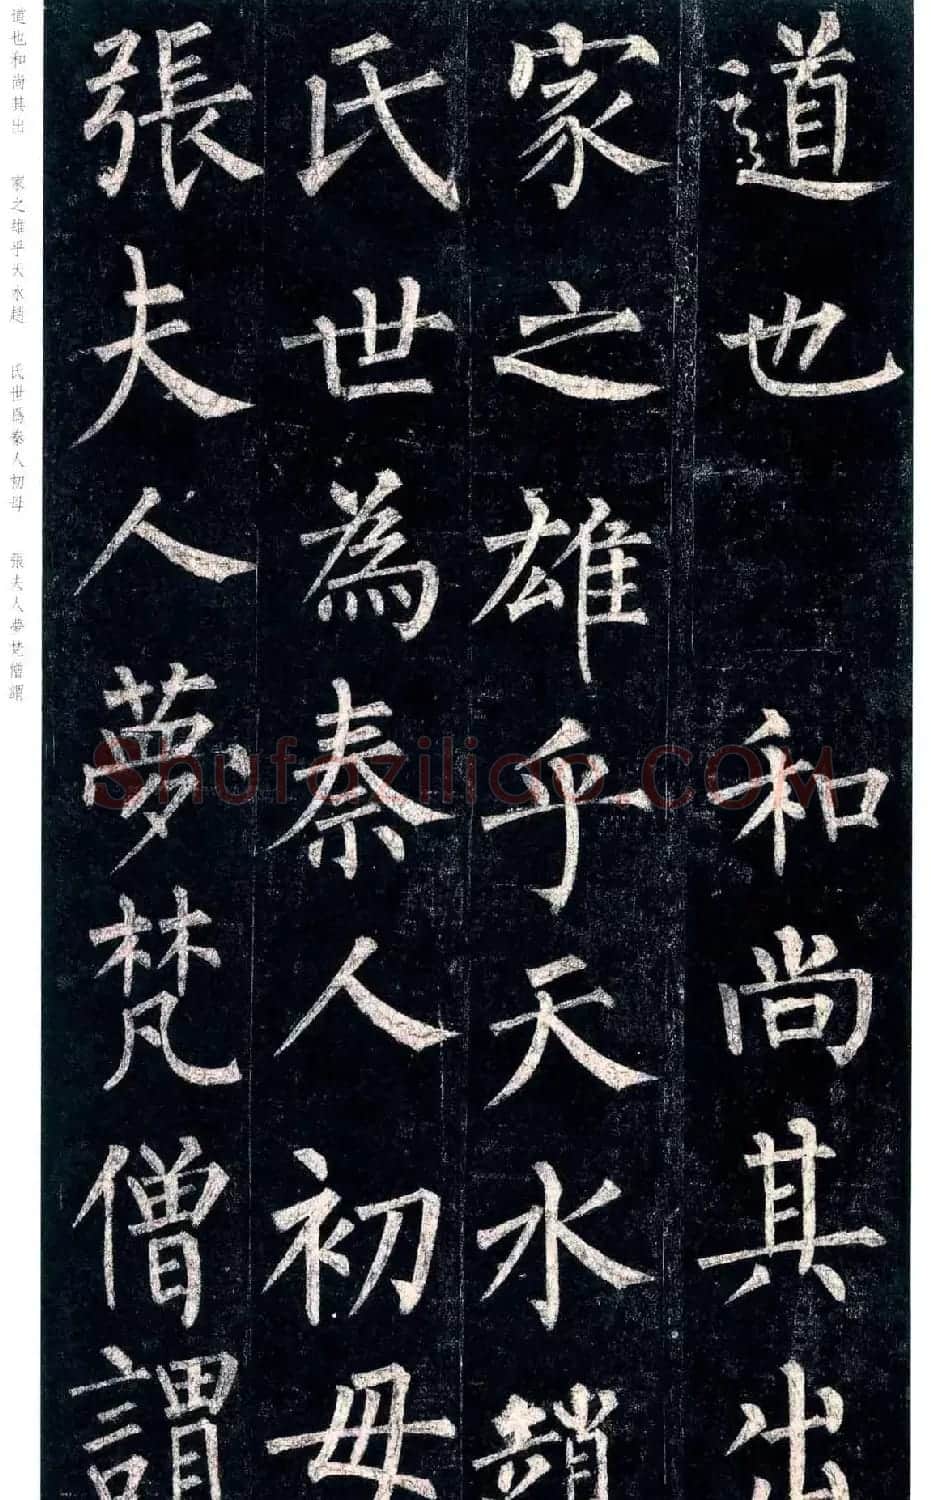 道也和尚其出
家之雄乎天水趙
氏世為秦人初母
張夫人夢梵僧謂
道也和尚其出 家之雄乎天水趙 氏世爲秦人初母 張夫人夢梵僧謂
Shufaziliao.COM